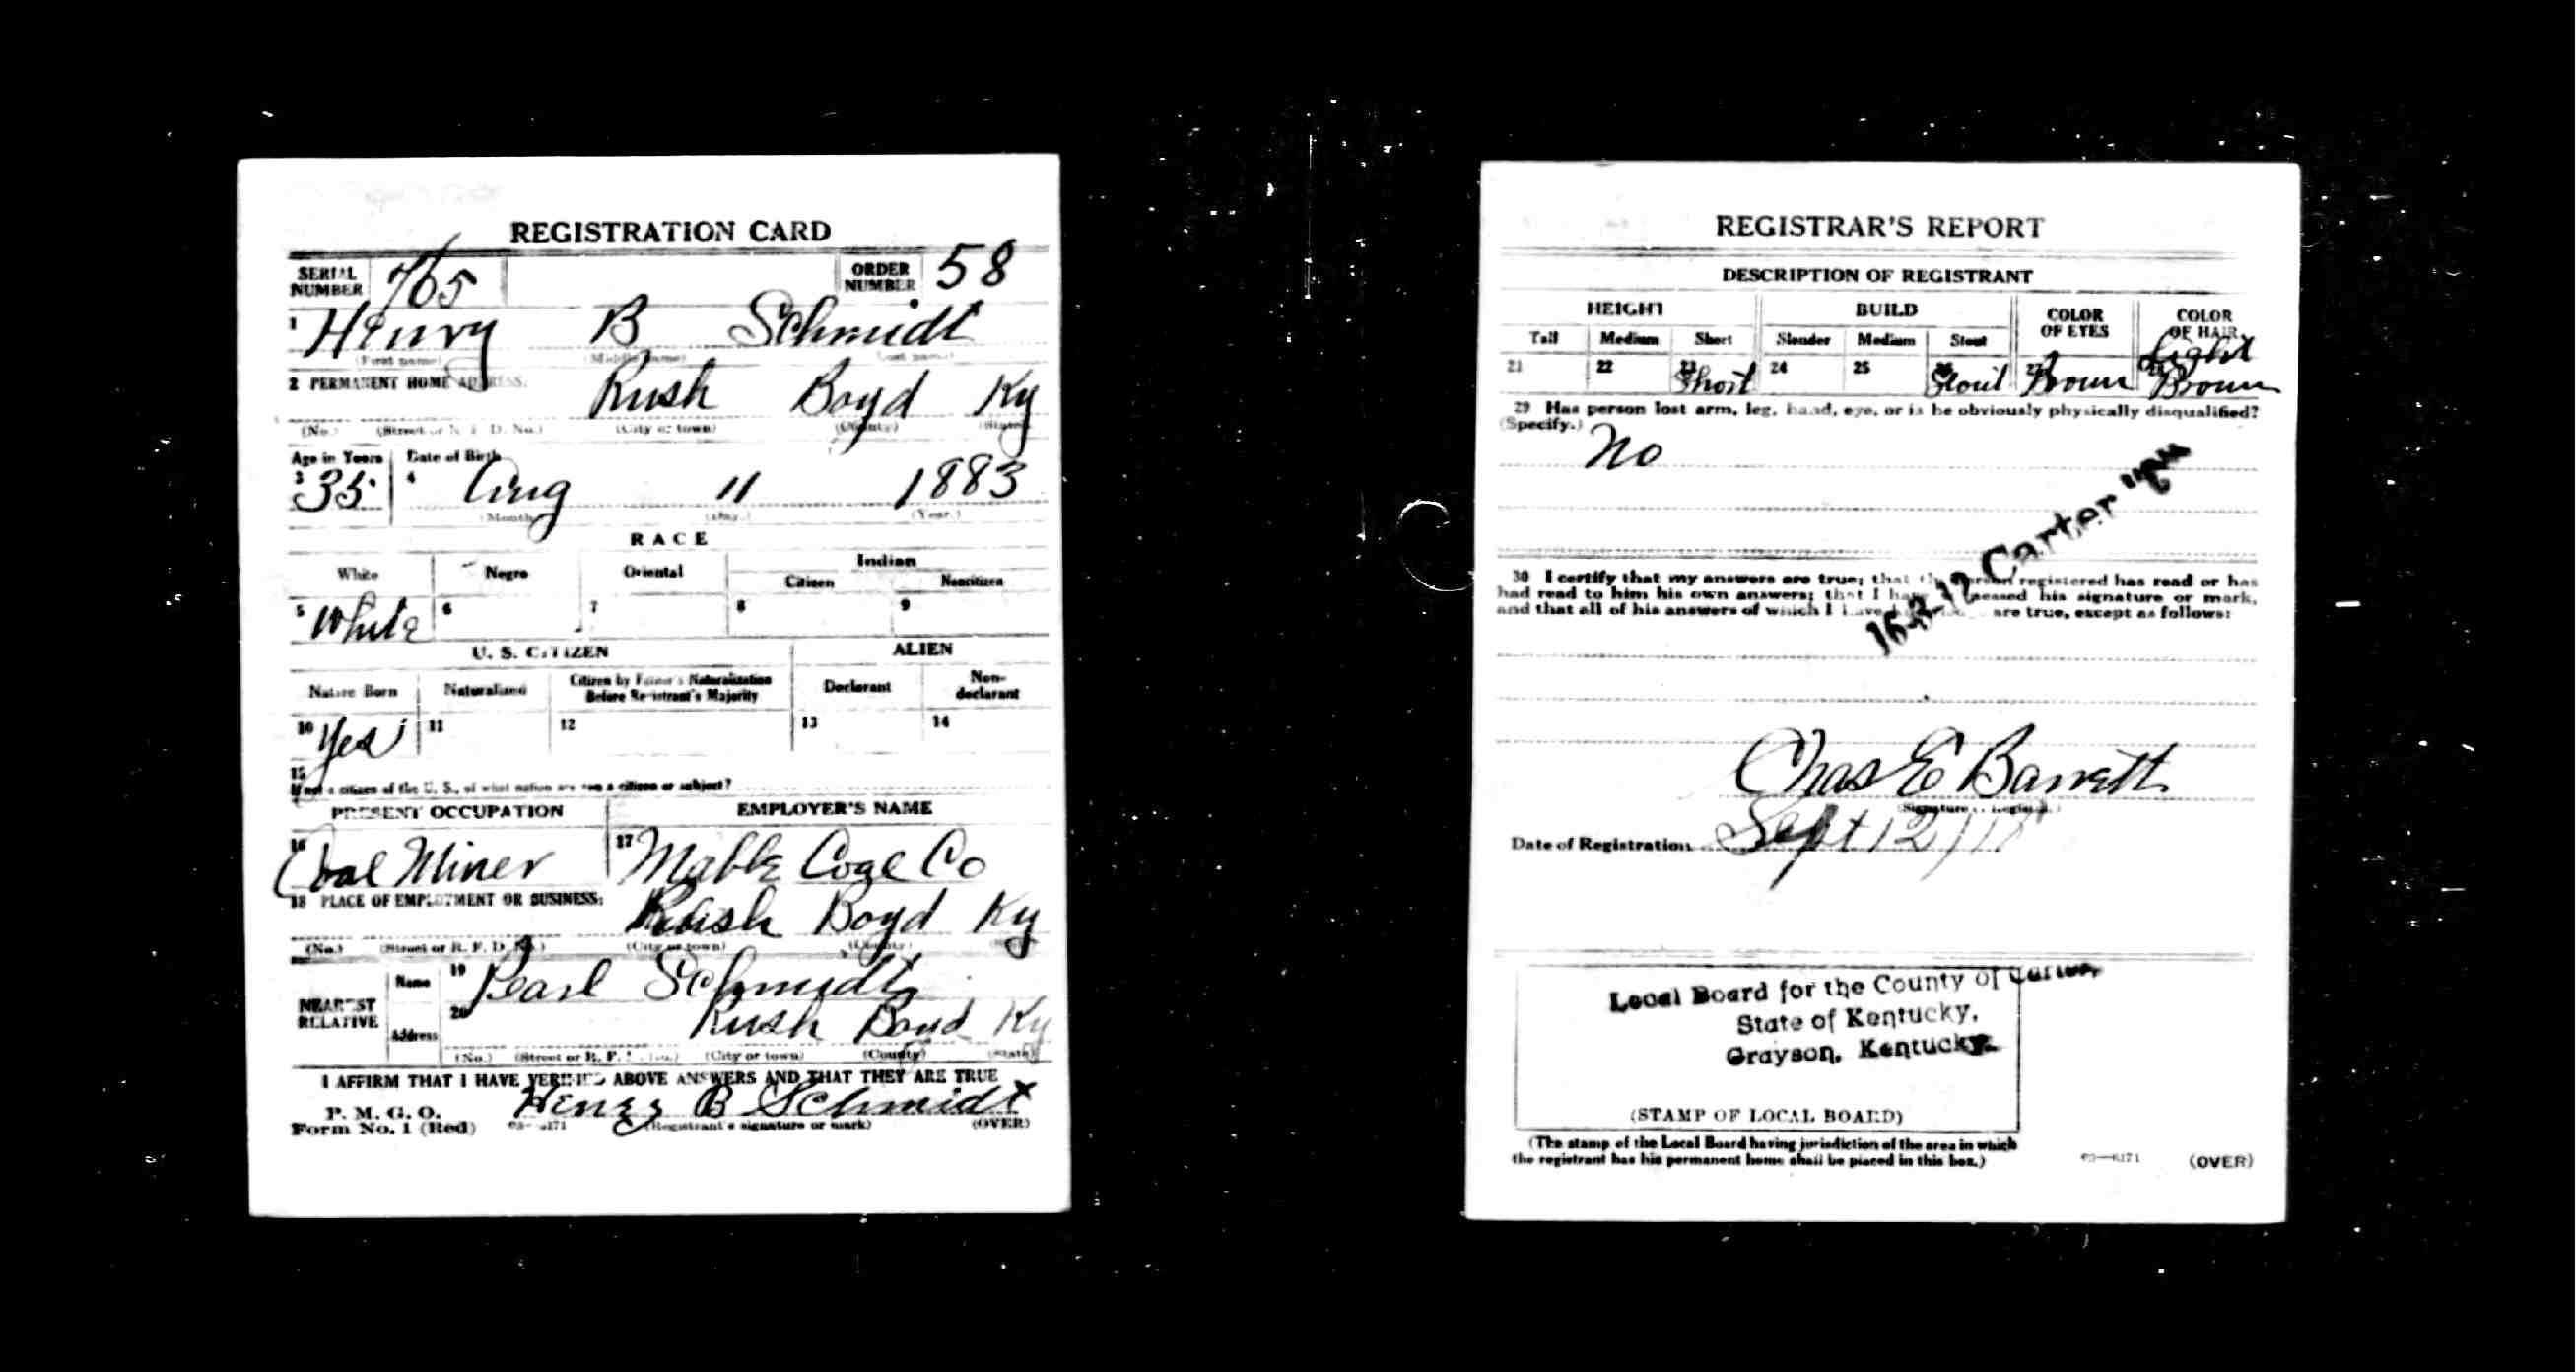 REGISTRATION CARD
SERIAL NUMBER 765 ORDER NUMBER 58
1 Henry B Schmidt
(First name) (Middle name) (Last name)
2 PERMANENT HOME ADDRESS:
Rush Boyd Ky
(No.) (Street or R. F. D. No.) (City or town) (County) (State)
Age in Years Date of Birth
3 35 4 Aug 11 1883
(Month) (Day.) (Year.)
RACE
White Negro Oriental Indian
Citizen Noncitizen
5 White 6 7 8 9
U. S. CITIZEN ALIEN
Native Born Naturalized Citizen by Father's Naturalization Before Registrant's Majority Declarant Non-declarant
10 Yes 11 12 13 14
15
If not a citizen of the U. S., of what nation are you a citizen or subject?
PRESENT OCCUPATION EMPLOYER'S NAME
16 Coal Miner 17 Coal Co
18 PLACE OF EMPLOYMENT OR BUSINESS:
Rush Boyd Ky
(No.) (Street or R. F. D. No.) (City or town) (County) (State)
NEAREST RELATIVE
Name 19 Pearl Schmidt
Address 20 Rush Boyd Ky
(No.) (Street or R. F. D. No.) (City or town) (County) (State)
I AFFIRM THAT I HAVE VERIFIED ABOVE ANSWERS AND THAT THEY ARE TRUE
P. M. G. O.
Form No. 1 (Red) 03—6171 Henry B Schmidt
(Registrant's signature or mark) (OVER)
REGISTRAR'S REPORT
DESCRIPTION OF REGISTRANT
HEIGHT BUILD COLOR OF EYES COLOR OF HAIR
Tall Medium Short Slender Medium Stout
21 22 23 Short 24 25 26 Stout 27 Brown Light Brown
29 Has person lost arm, leg, hand, eye, or is he obviously physically disqualified?
(Specify.)
No
16-3-12 Carter
30 I certify that my answers are true; that the person registered has read or has
had read to him his own answers; that I have witnessed his signature or mark,
and that all of his answers of which I have are true, except as follows:
Chas E Barrett
(Signature Registrar)
Date of Registration Sept 12/18
Local Board for the County of Carter,
State of Kentucky,
Grayson, Kentucky.
(STAMP OF LOCAL BOARD)
(The stamp of the Local Board having jurisdiction of the area in which
the registrant has his permanent home shall be placed in this box.)
03—6171 (OVER)